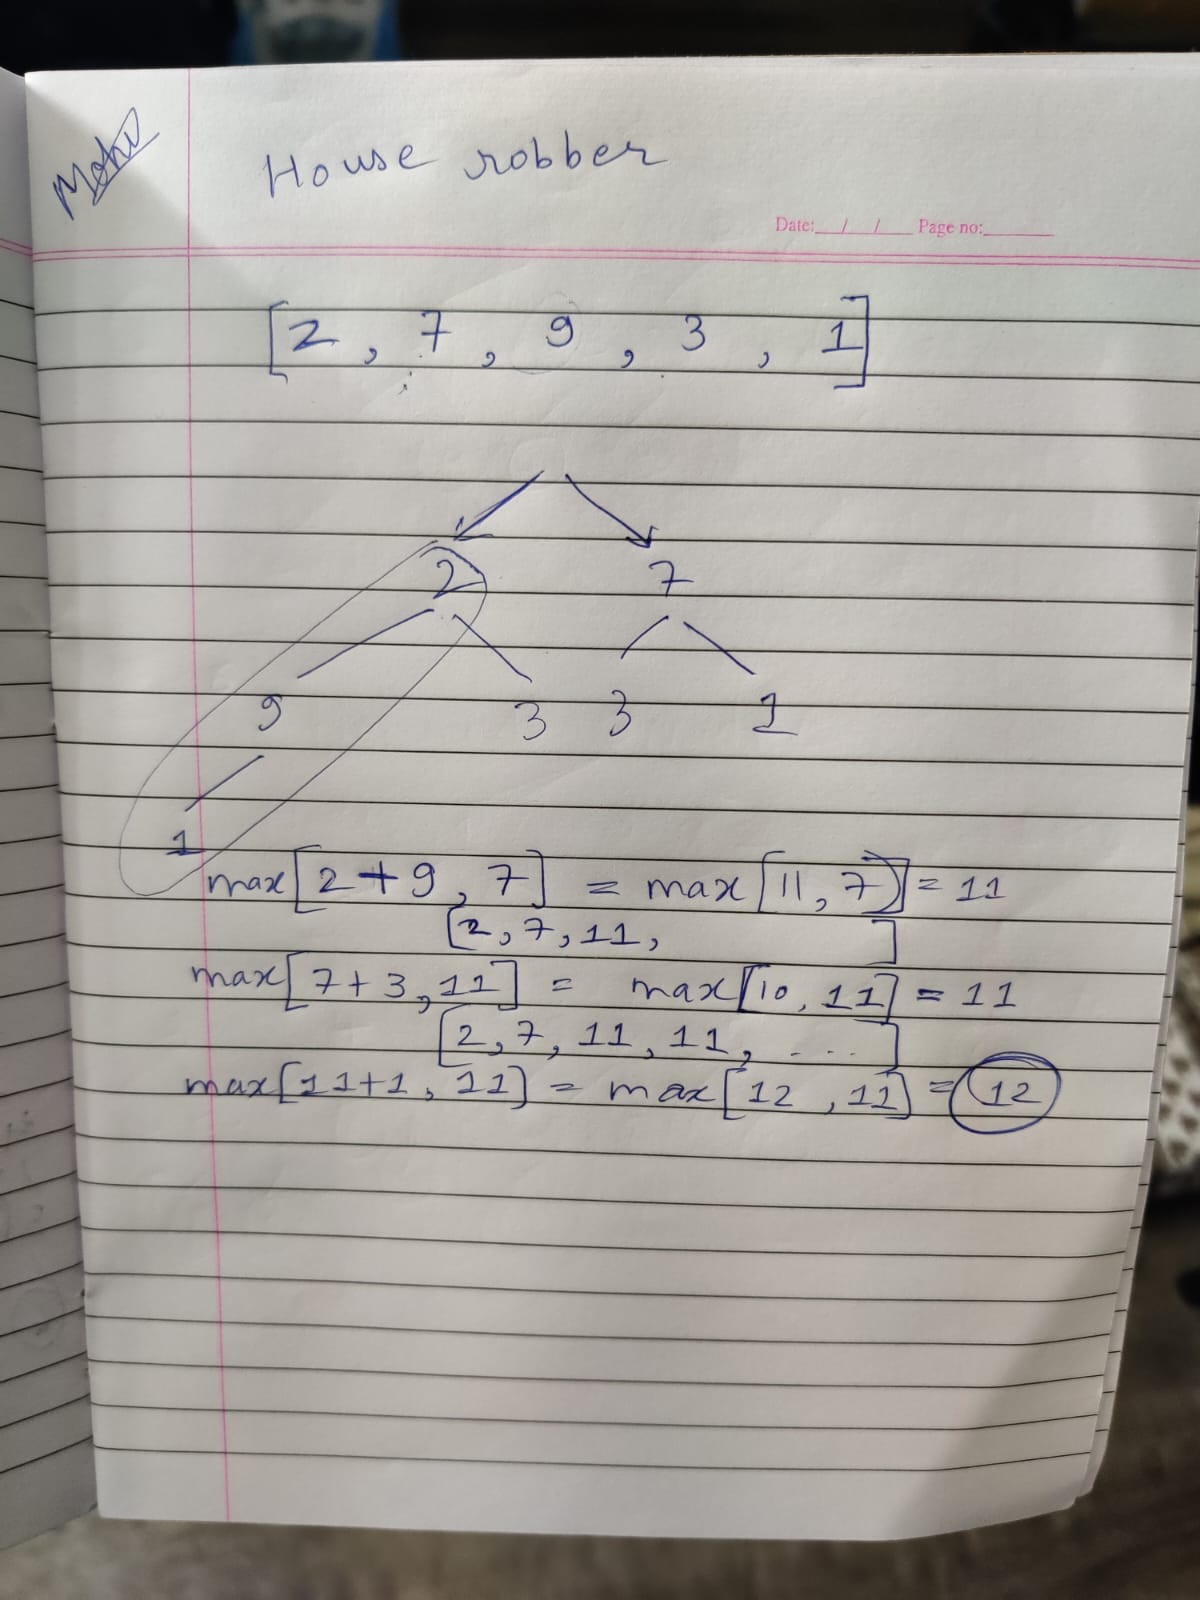 House robber
Date: / / Page no:
[2, 7, 9, 3, 1]
2 7
9 3 3 1
1
max[2+9, 7] = max[11, 7] = 11
[2, 7, 11, ]
max[7+3, 11] = max[10, 11] = 11
[2, 7, 11, 11, ...]
max[11+1, 11] = max[12, 11] = 12